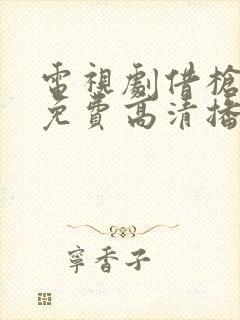 電視劇借槍
免費高清播
寧香子